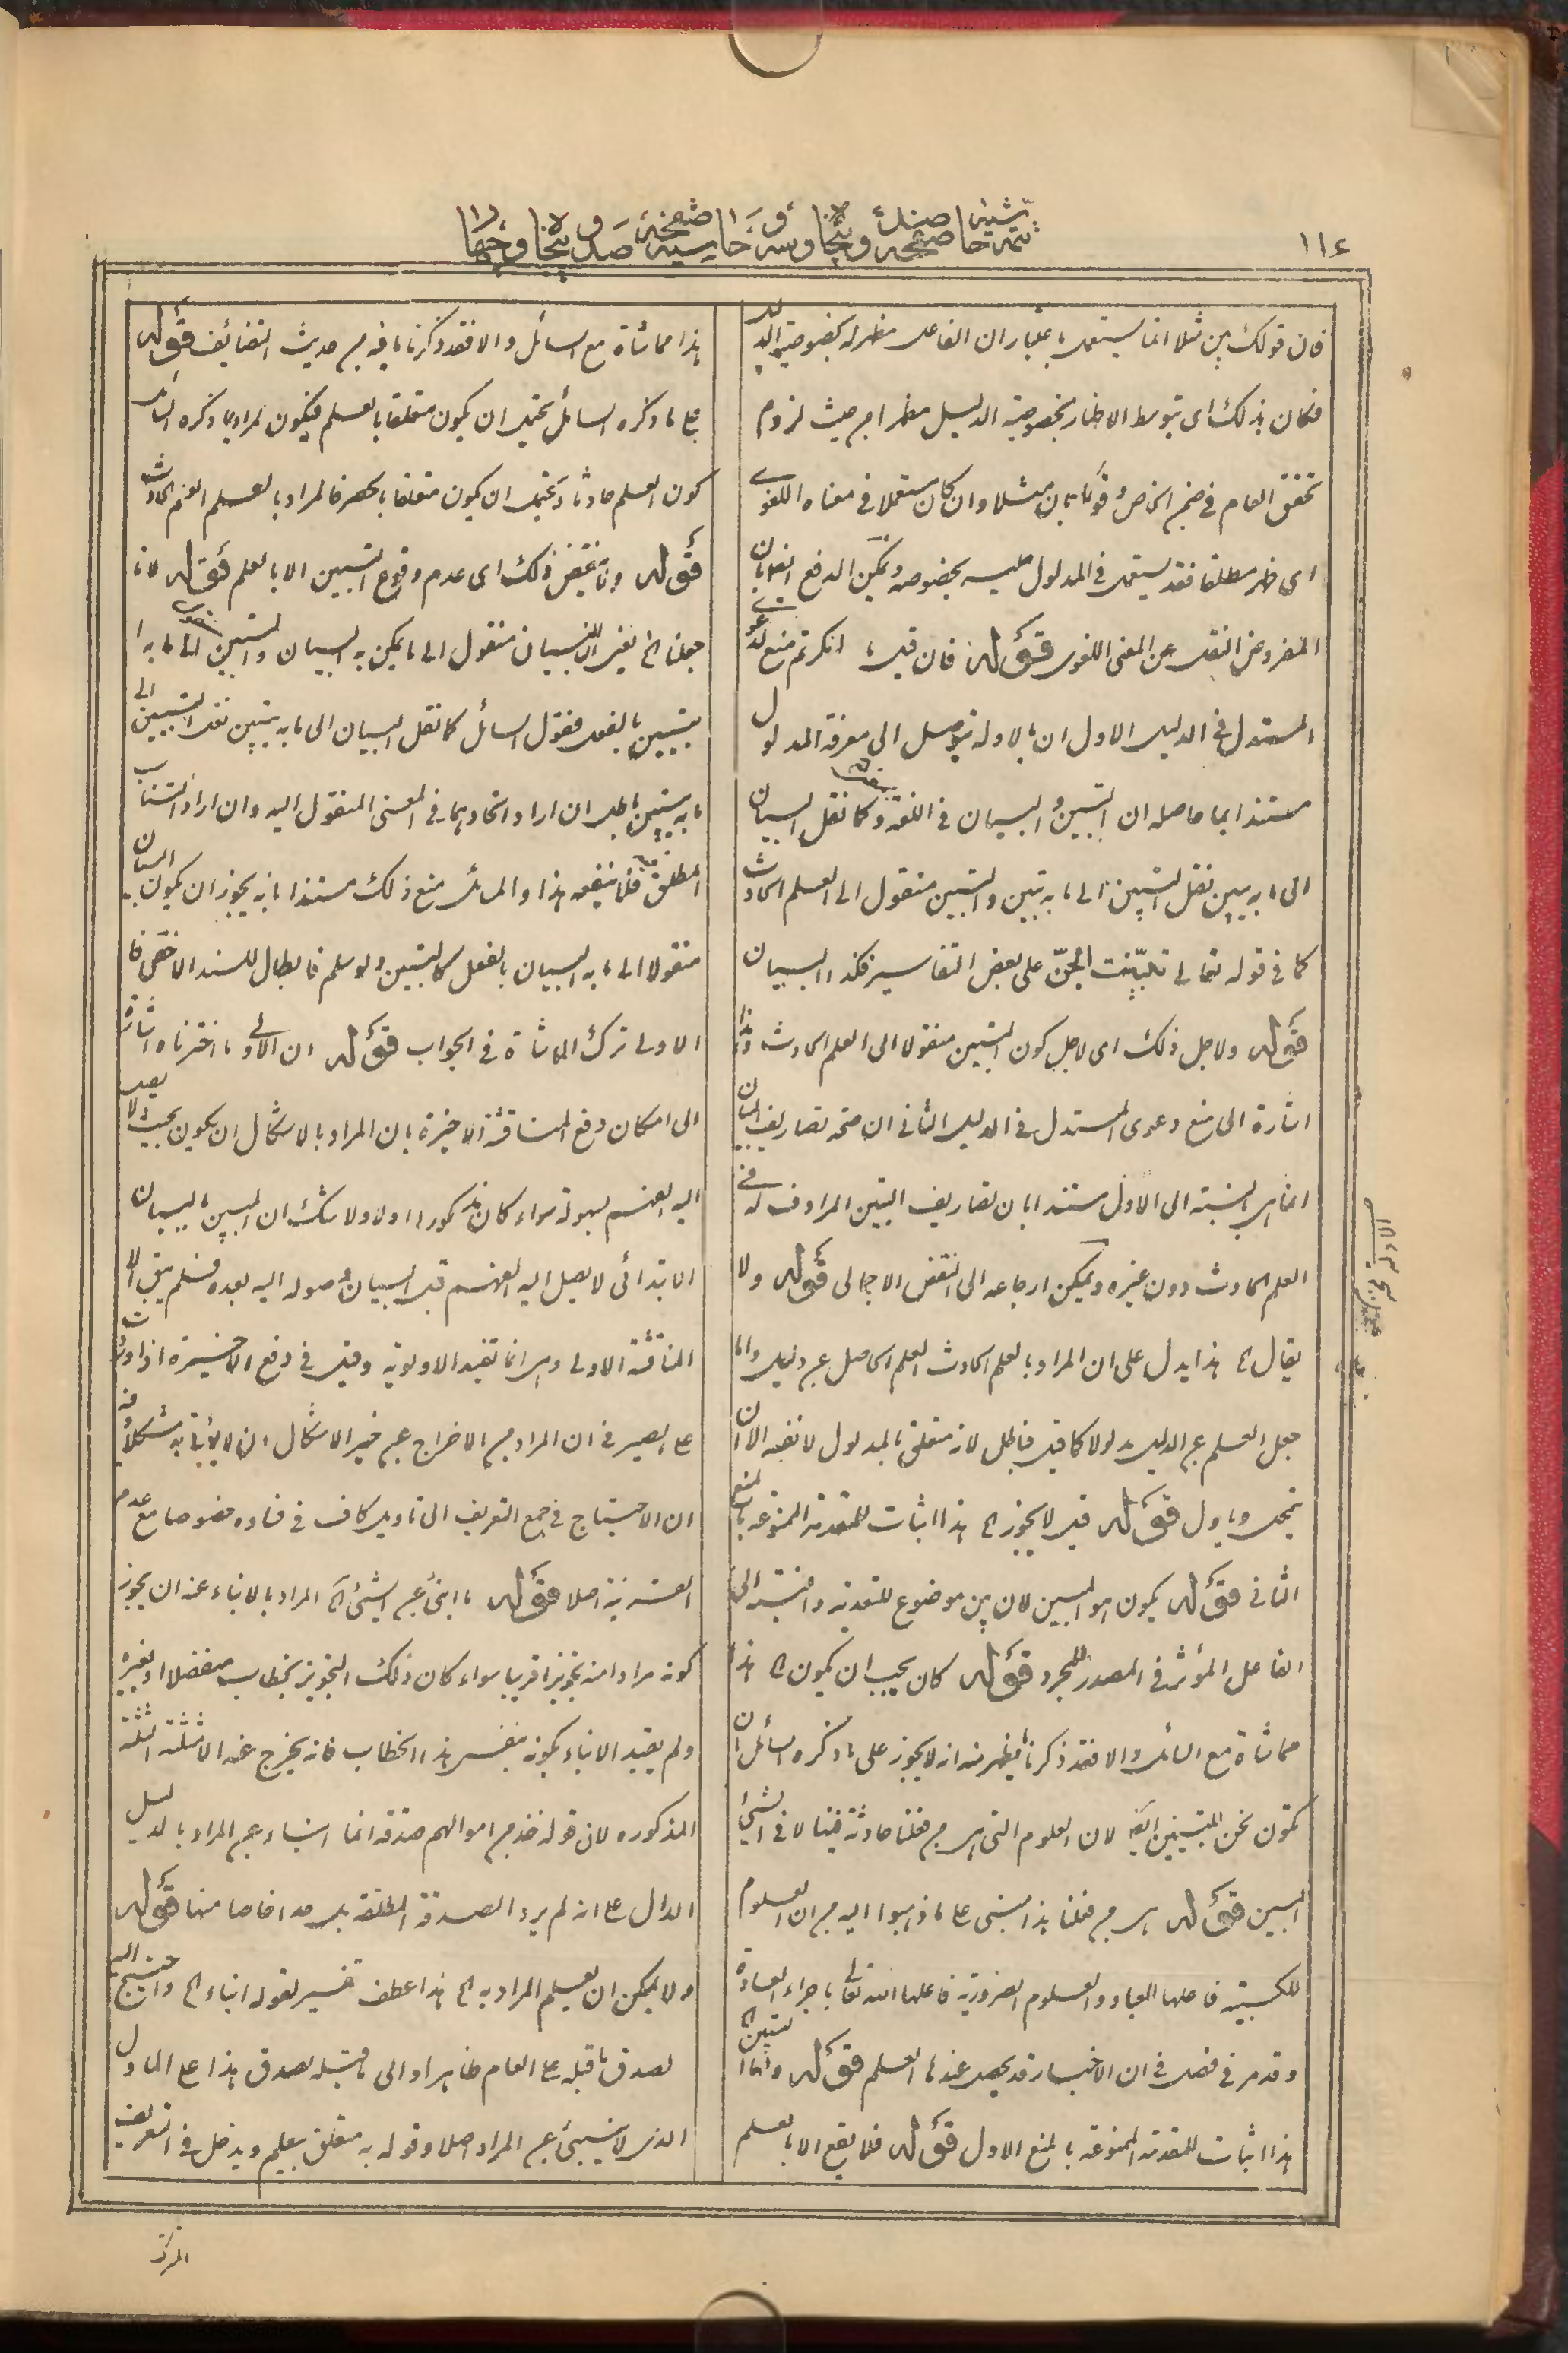 ١١٤
تتمة حاشية صفحه صد و پنجاه و سه و حاشيه صفحه صد و پنجاه و چهار
فان قولك بين مثلا انما يستعمل باعتبار ان الفاعل مظهر له بخصوصية الدليل
فكان بذلك اى بتوسط الاظهار بخصوصية الدليل مظهرا من حيث لزوم
تحقق العام فى ضمن الخاص وقولنا بان مثلا وان كان مستعملا فى معناه اللغوى
اى ظهر مطلقا فقد يستعمل فى المدلول عليه بخصوصه ويمكن الدفع ايضا بان
المفروض النقل عن المعنى اللغوى قوله فان قيل ما انكرتم منع لدعوى
المستدل فى الدليل الاول ان بالادلة يتوصل الى معرفة المدلول
مستندا بما حاصله ان التبين والبيان فى اللغة وكما نقل البيان
الى ما به يبين نقل التبين الى ما به تبين والتبين منقول الى العلم الحادث
كما فى قوله تعالى تبينت الجن على بعض التفاسير فكذا البيان
قوله ولاجل ذلك اى لاجل كون التبين منقولا الى العلم الحادث وهذا
اشارة الى منع دعوى المستدل فى الدليل الثانى ان صحة تصاريف البيان
انما هى بالنسبة الى الاول مستندا بان تصاريف التبين المرادف له فى
العلم الحادث دون غيره ويمكن ارجاعه الى النقض الاجمالى قوله ولا
يقال الخ هذا يدل على ان المراد بالعلم الحادث العلم الحاصل عن دليل واما
جعل العلم عن الدليل مدلولا كما قيل فباطل لانه متعلق بالمدلول لا نفسه الا ان
يتمحل وياول قوله قيل لا يجوز الخ هذا اثبات للمقدمة الممنوعة بالمنع
الثانى قوله يكون هو المبين لان بين موضوع للتعدية والنسبة الى
الفاعل المؤثر فى المصدر المجرد قوله كان يجب ان يكون الخ هذا
مماشاة مع السائل والا فقد ذكرنا ما يظهر منه انه لا يجوز على ما ذكره السائل ان
تكون نحن المتبينين ايضا لان العلوم التى هى من فعلنا حادثة فينا لا فى الشئ
المبين قوله هى من فعلنا هذا مبنى على ما ذهبوا اليه من ان العلوم
الكسبية فاعلها العباد والعلوم الضرورية فاعلها الله تعالى باجراء العادة
وقد مر فى فصل فى ان الاخبار قد يحصل عندها العلم قوله واما التبين الخ
هذا اثبات للمقدمة الممنوعة بالمنع الاول قوله فلا يقع الا بالعلم
هذا مماشاة مع السائل والا فقد ذكرنا ما فيه من حديث التضائف قوله
على ما ذكره السائل يحتمل ان يكون متعلقا بالعلم فيكون المراد بما ذكره السائل
كون العلم حادثا ويحتمل ان يكون متعلقا بالحصر فالمراد بالعلم العلم الحادث
قوله وناقض ذلك اى عدم وقوع التبيين الا بالعلم قوله لانا
جعلنا الخ يعنى ان البيان منقول الى ما يمكن به البيان والتبين الى ما به
يتبين بالفعل فقول السائل كما نقل البيان الى ما به يتبين نقل التبين الى
ما به يتبين باطل ان اراد اتحادهما فى المعنى المنقول اليه وان اراد التناسب
المطلق فلا ينفعه هذا وللسائل منع ذلك مستندا بانه يجوز ان يكون البيان
منقولا الى ما به البيان بالفعل كالتبين ولو سلم فابطال للسند الاخص فا
الاولى ترك المماشاة فى الجواب قوله ان الاولى ما اخترناه اشارة
الى امكان دفع المناقشة الاخيرة بان المراد بالاشكال ان يكون بحيث لا يصل
اليه الفهم بسهولة سواء كان مذكورا اولا ولا شك ان المبين بالبيان
الابتدائى لا يصل اليه الفهم قبل البيان وصوله اليه بعده فلم يبق الا
المناقشة الاولى وهى انما تفيد الاولوية وقيل فى دفع الاخيرة اذا دلت
على المصير فى ان المراد من الاخراج عن حيز الاشكال ان لا يؤتى به مشكلا وفيه
ان الاحتياج فى جمع التعريف الى تاويل كاف فى فساده خصوصا مع عدم
القرينة اصلا قوله ما انبئ عن الشئ الخ المراد بالانباء عنه ان يجوز
كونه مرادا منه تجويزا قريبا سواء كان ذلك التجويز بخطاب منفصل او بغيره
ولم يقيد الانباء بكونه بنفس هذا الخطاب فانه يخرج عنه الامثلة الثلثة
المذكورة لان قوله خذ من اموالهم صدقة انما انباء عن المراد بالدليل
الدال على انه لم يرد الصدقة المطلقة بل قدرا خاصا منها قوله
ولا يمكن ان يعلم المراد به الخ هذا عطف تفسير لقوله انباء الخ واحتيج اليه
لصدق ما قبله على العام ظاهرا والى ما قبله لصدق هذا على الماول
الذى لا ينبئ عن المراد اصلا وقوله به متعلق بيعلم ويدخل فى التعريف
المركز